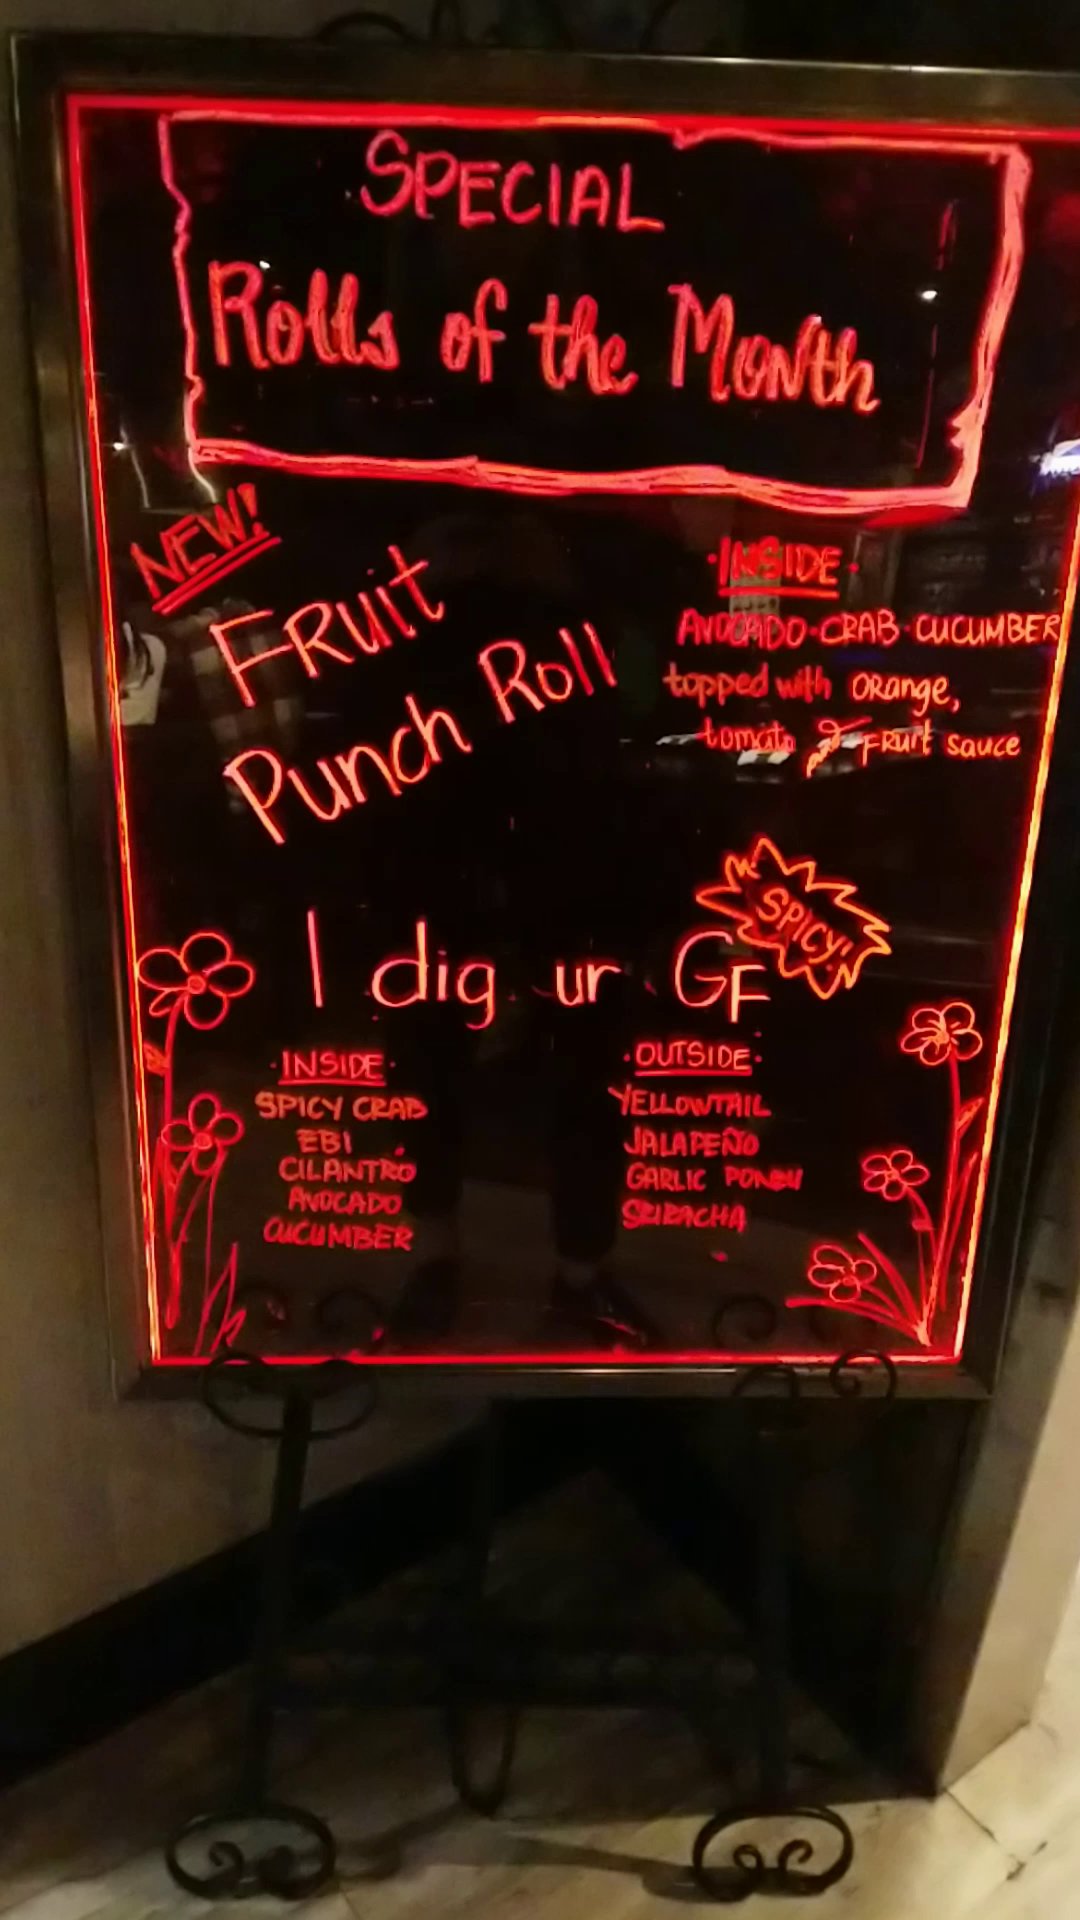 SPECIAL
Rolls of the Month
NEW!
FRuit
Punch Roll
·INSIDE·
AVOCADO·CRAB·CUCUMBER
topped with ORange,
tomato and FRuit sauce
SPICY!
I dig ur GF
·INSIDE·
SPICY CRAB
EBI
CILANTRO
AVOCADO
CUCUMBER
·OUTSIDE·
YELLOWTAIL
JALAPEÑO
GARLIC PONZU
SRIRACHA